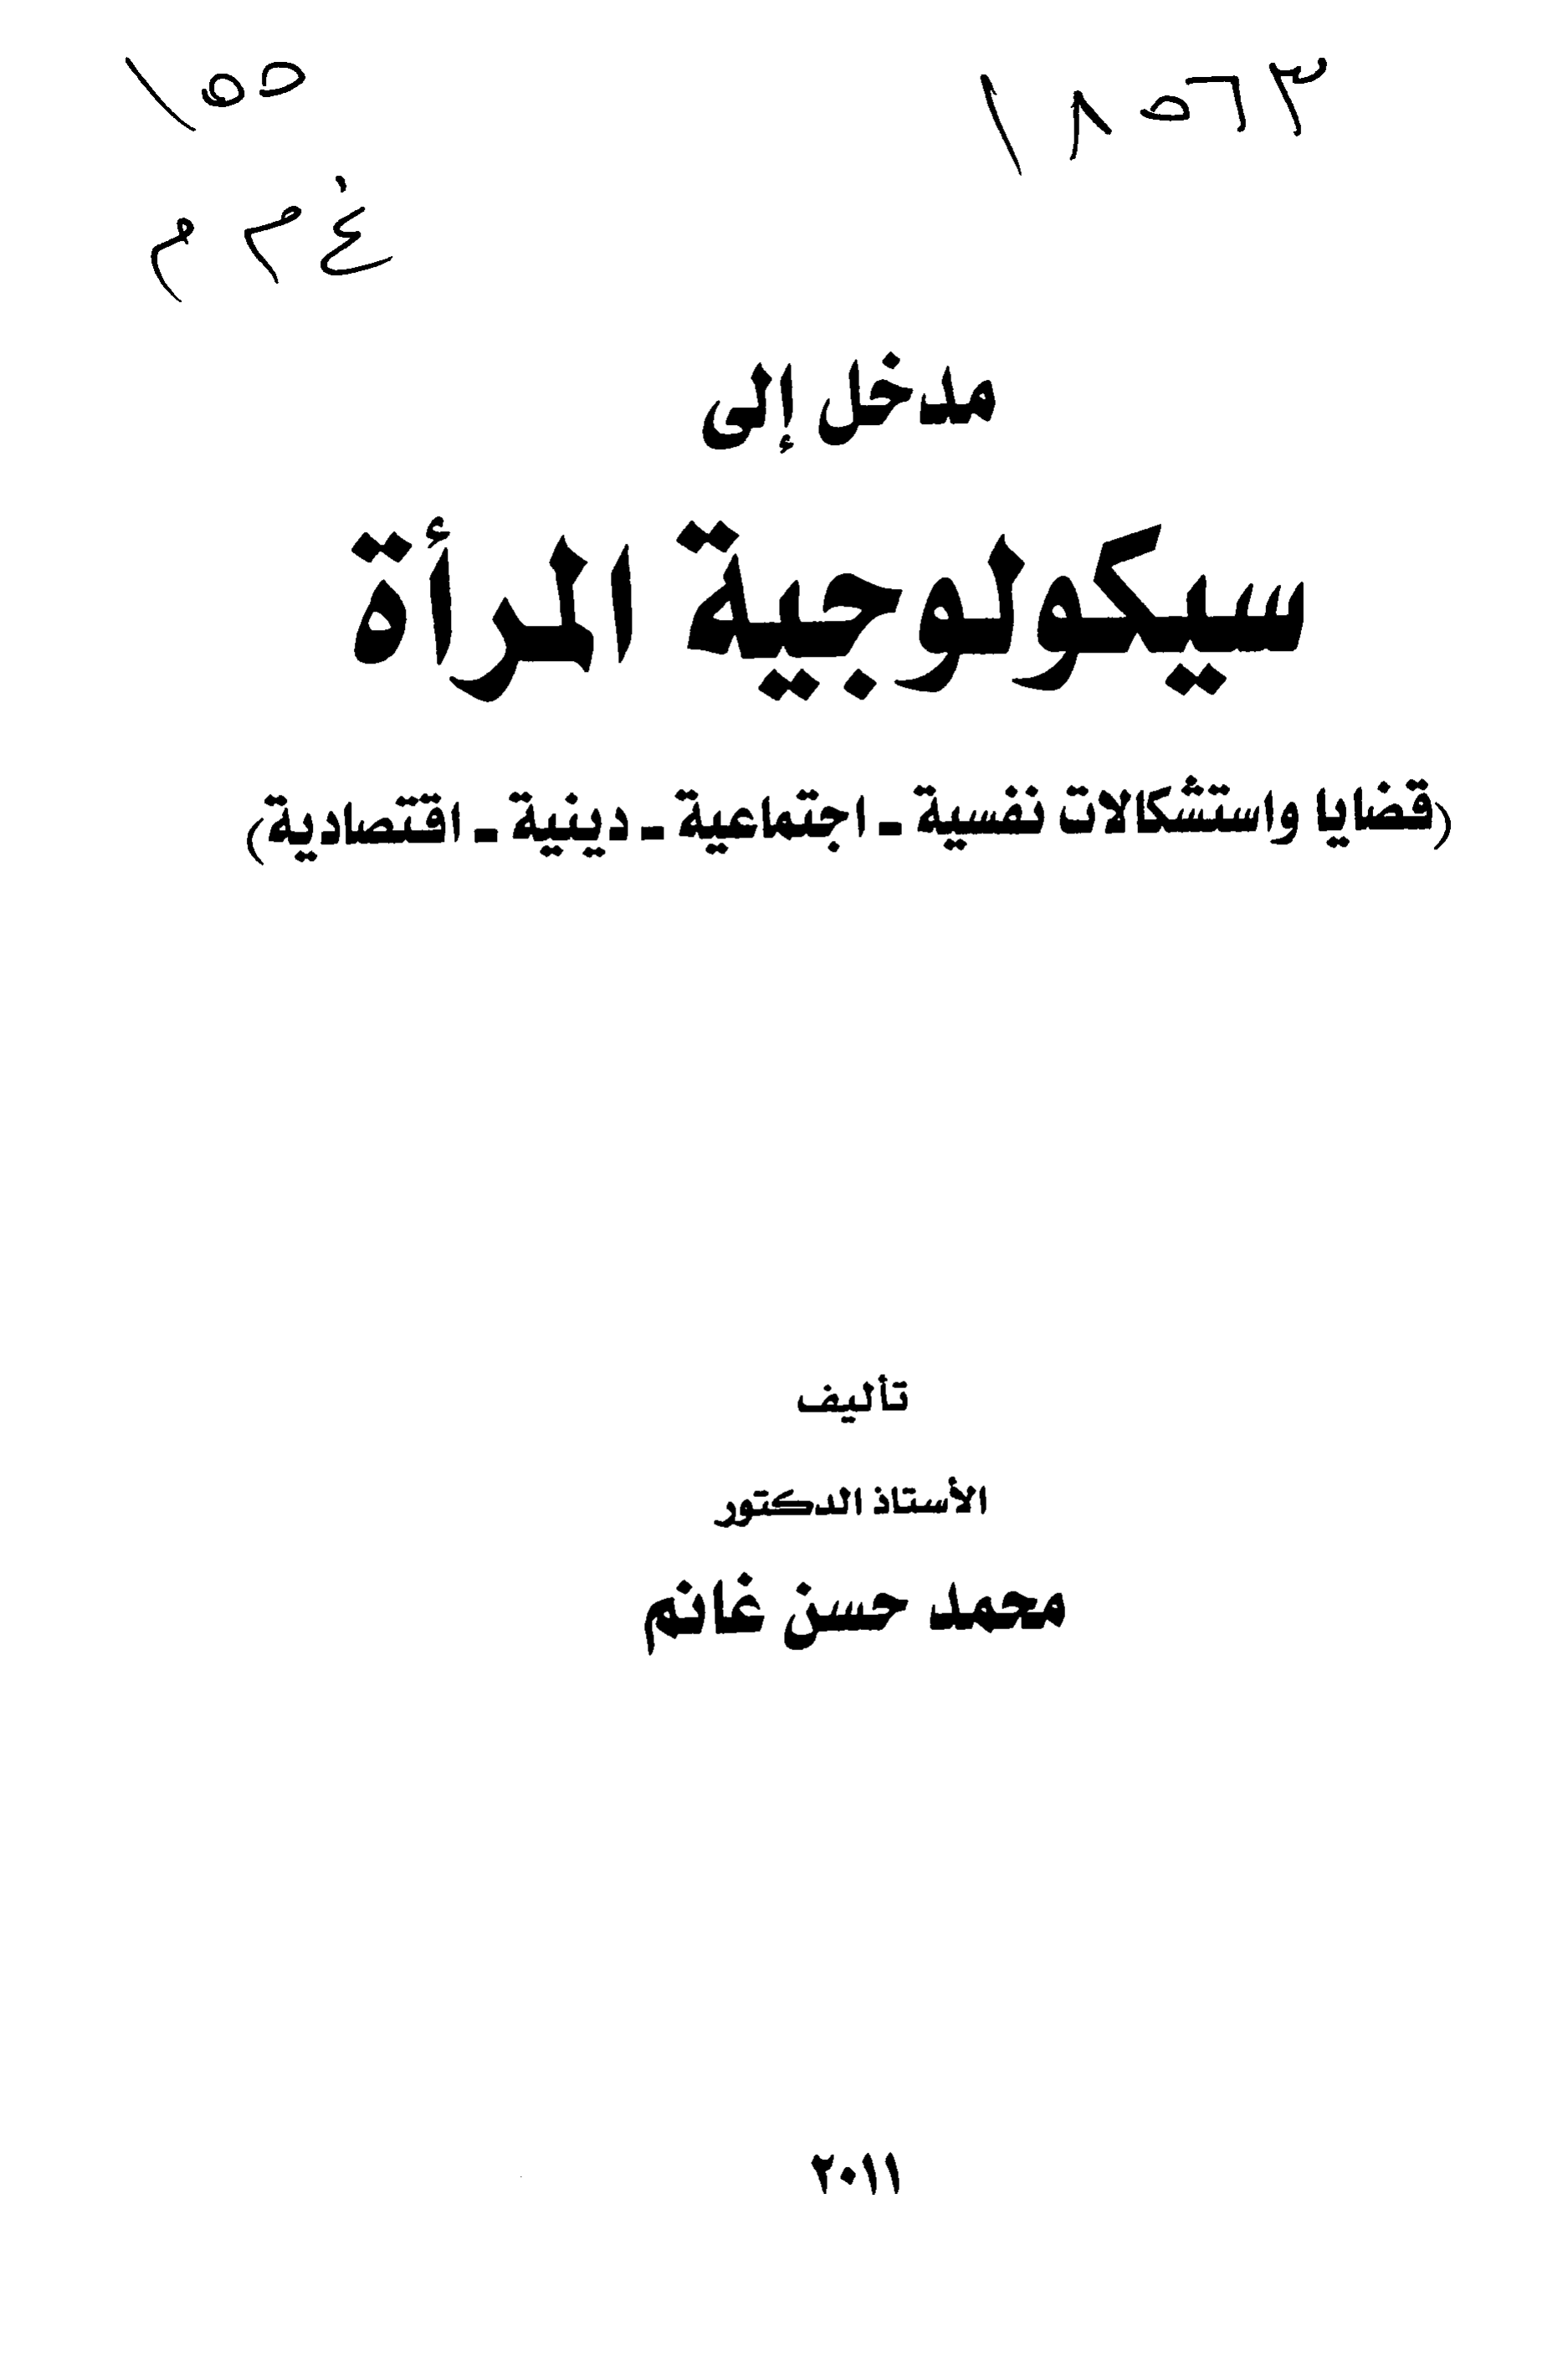 ١٨٥٦٣
١٥٥
غ م م
مدخل إلى
سيكولوجية المرأة
(قضايا واستشكالات نفسية ـ اجتماعية ـ دينية ـ اقتصادية)
تأليف
الأستاذ الدكتور
محمد حسن غانم
٢٠١١